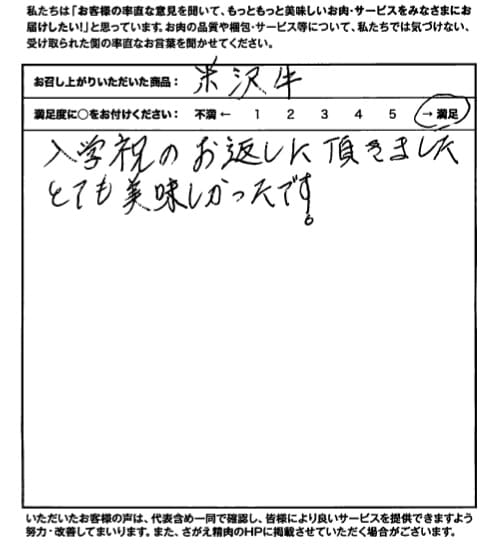 私たちは「お客様の率直な意見を聞いて、もっともっと美味しいお肉・サービスをみなさまにお
届けしたい!」と思っています。お肉の品質や梱包・サービス等について、私たちでは気づけない、
受け取られた側の率直なお言葉を聞かせてください。
お召し上がりいただいた商品： 米沢牛
満足度に○をお付けください： 不満 ← 1 2 3 4 5 → 満足
入学祝のお返しに頂きました
とても美味しかったです。
いただいたお客様の声は、代表含め一同で確認し、皆様により良いサービスを提供できますよう
努力・改善してまいります。また、さがえ精肉のHPに掲載させていただく場合がございます。